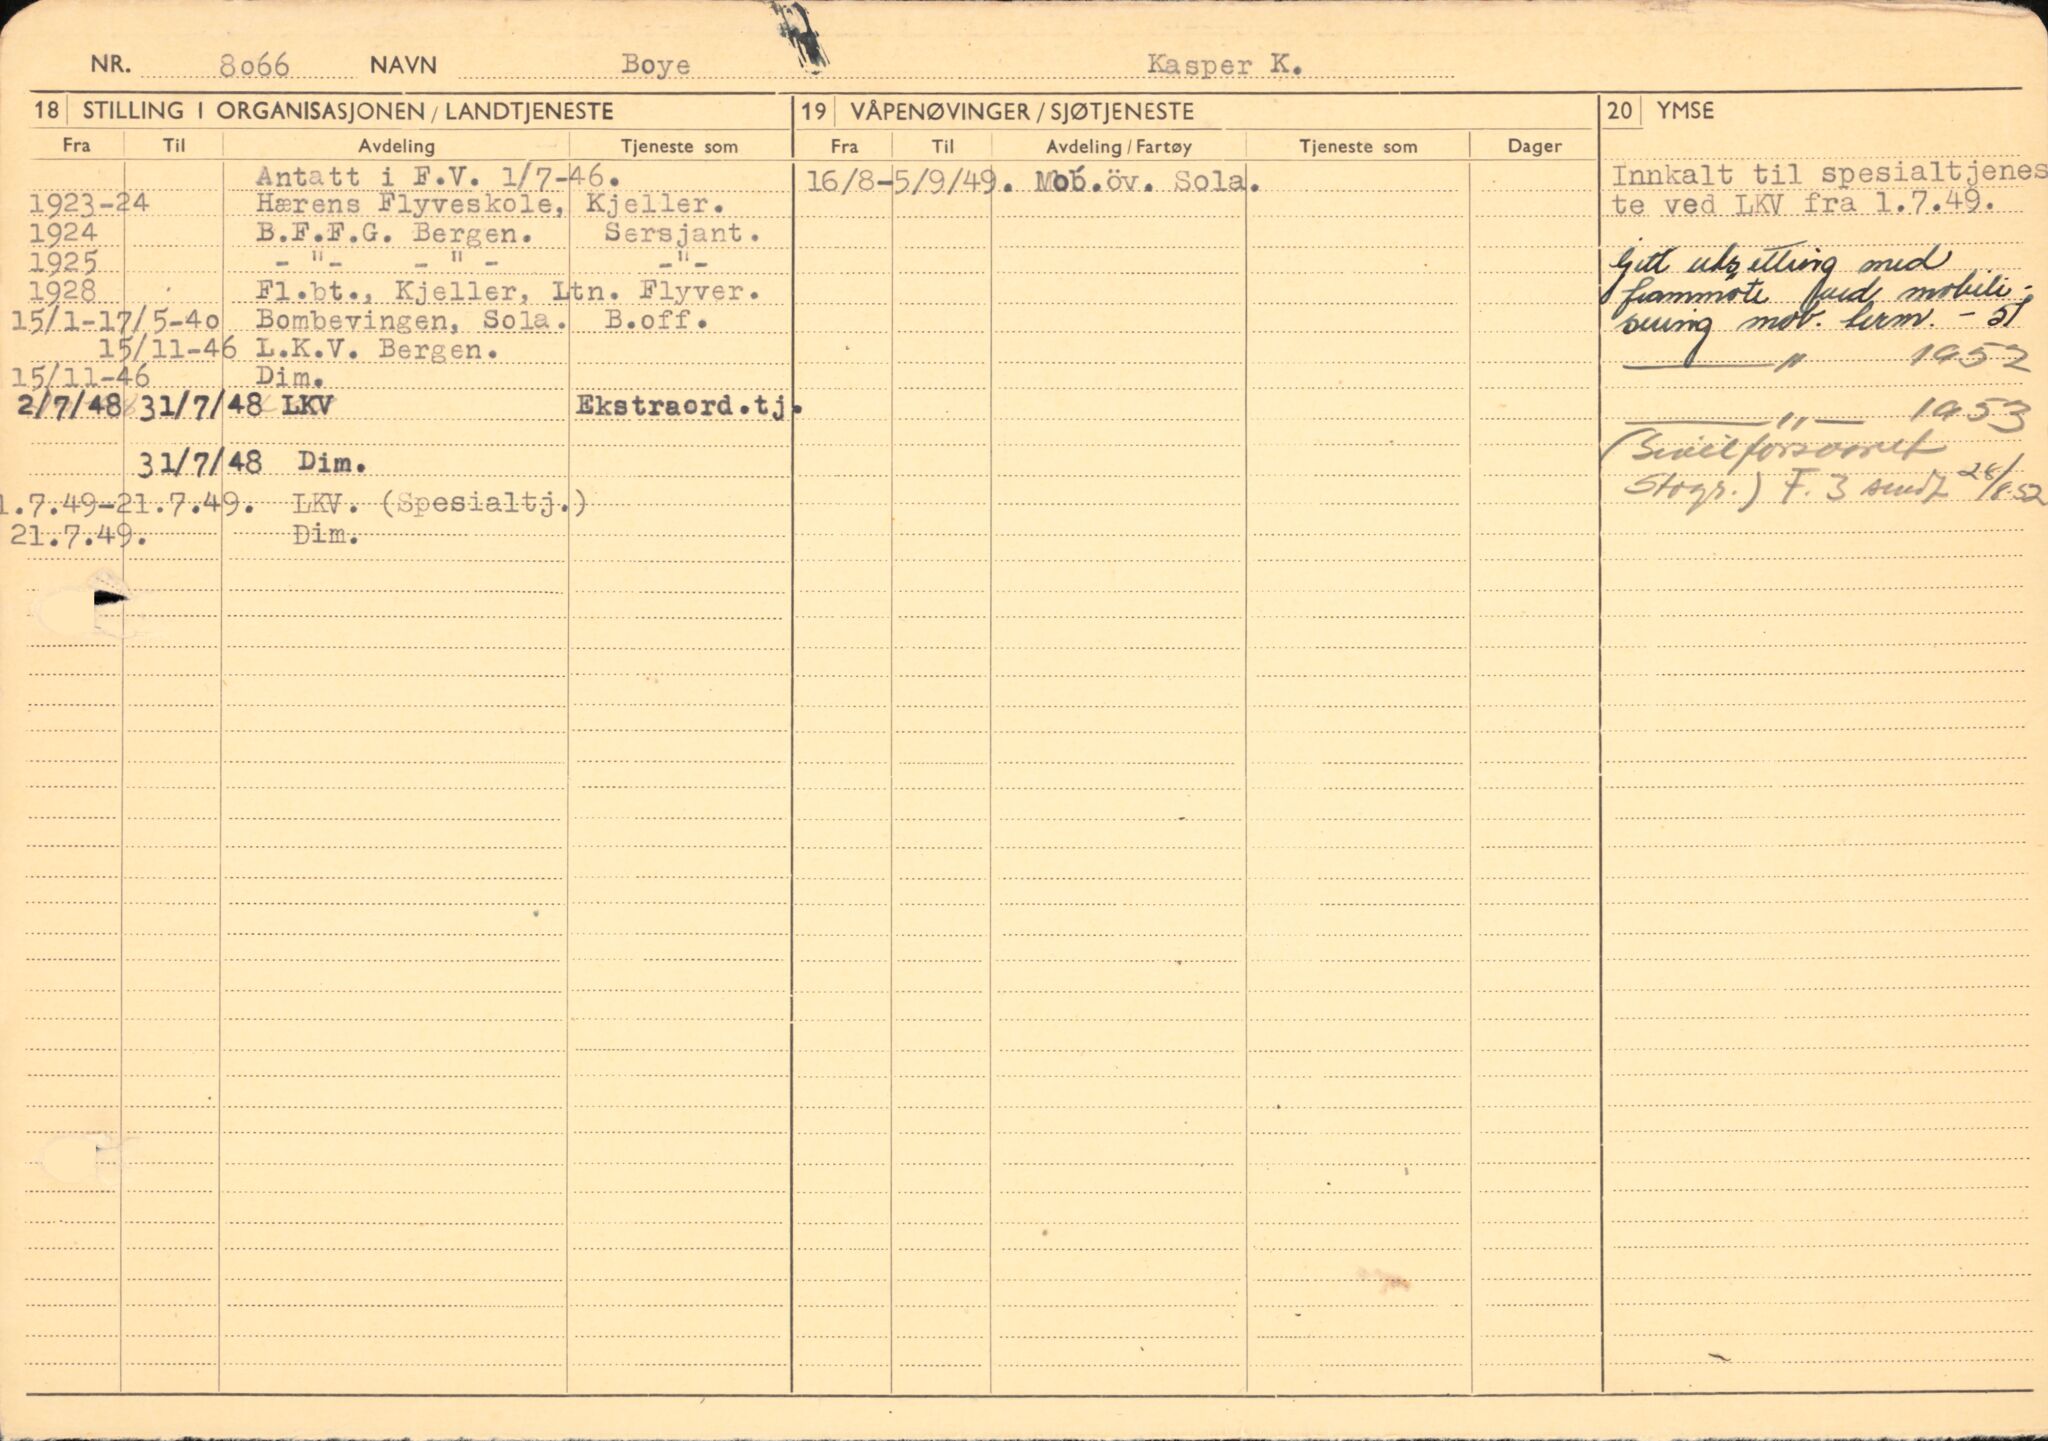 NR. 8066 NAVN Boye Kasper K.
18 STILLING I ORGANISASJONEN / LANDTJENESTE
Fra Til Avdeling Tjeneste som
Antatt i F.V. 1/7-46.
1923-24 Hærens Flyveskole, Kjeller.
1924 B.F.F.G. Bergen. Sersjant.
1925 - "- - " - -"-
1928 Fl.bt., Kjeller, Ltn. Flyver.
15/1-17/5-40 Bombevingen, Sola. B.off.
15/11-46 L.K.V. Bergen.
15/11-46 Dim.
2/7/48 31/7/48 LKV Ekstraord.tj.
31/7/48 Dim.
1.7.49-21.7.49. LKV. (Spesialtj.)
21.7.49. Dim.
19 VÅPENØVINGER / SJØTJENESTE
Fra Til Avdeling / Fartøy Tjeneste som Dager
16/8-5/9/49. Mob.öv. Sola.
20 YMSE
Innkalt til spesialtjenes
te ved LKV fra 1.7.49.
Gitt utsetting med
frammöte ved mobili-
sering mob. term. - 51
" 1952
" 1953
(Sivilforsvaret
) F. 3 sendt 28/8.52